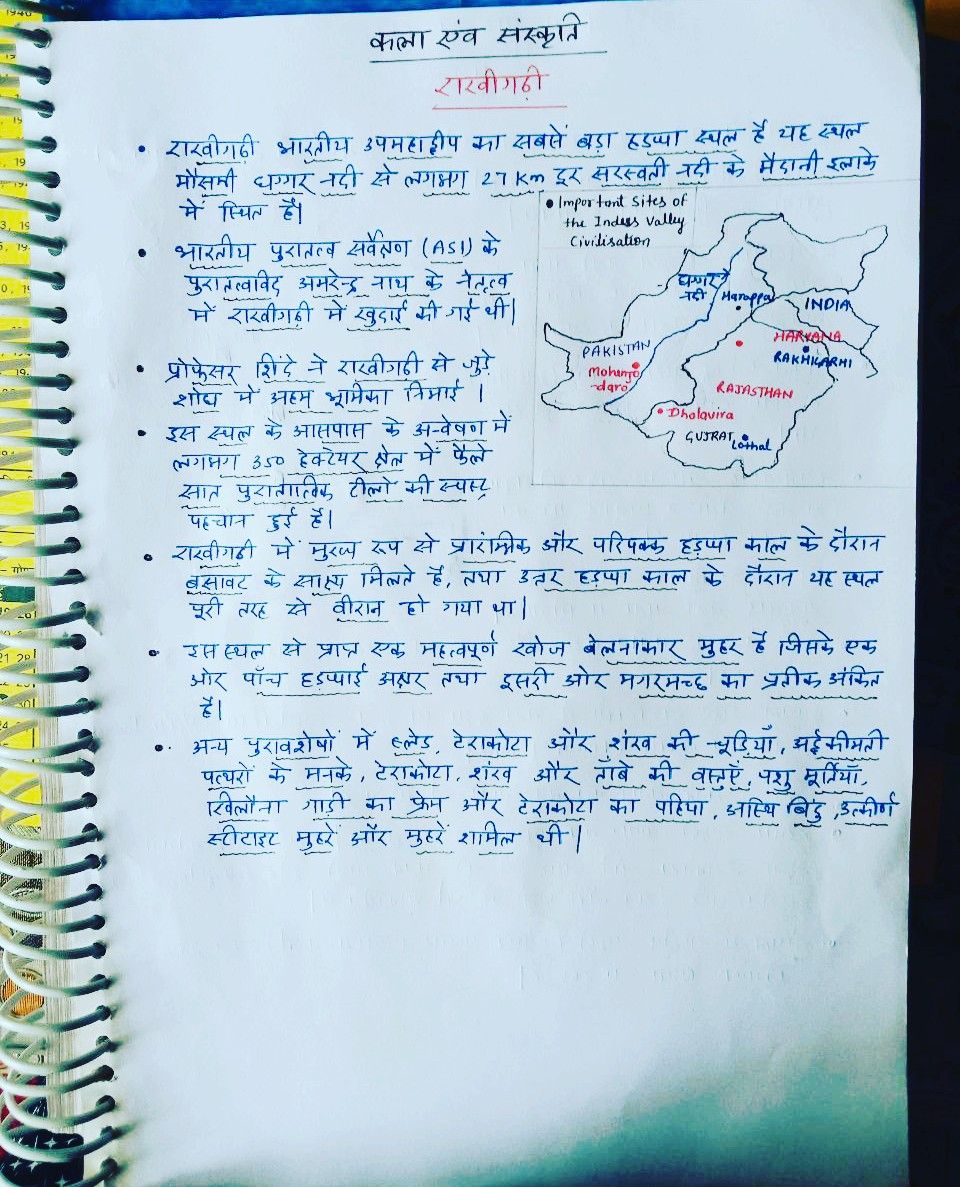 कला एंव संस्कृति
राखीगढ़ी
• राखीगढ़ी भारतीय उपमहाद्वीप का सबसे बड़ा हड़प्पा स्थल है यह स्थल
मौसमी घग्गर नदी से लगभग 27 Km दूर सरस्वती नदी के मैदानी इलाके
में स्थित है।
• भारतीय पुरातत्व सर्वेक्षण (ASI) के
पुरातत्वविद अमरेन्द्र नाथ के नेतृत्व
में राखीगढ़ी में खुदाई की गई थी।
• प्रोफेसर शिंदे ने राखीगढ़ी से जुड़े
शोध में अहम भूमिका निभाई ।
• इस स्थल के आसपास के अन्वेषण में
लगभग 350 हेक्टेयर क्षेत्र में फैले
सात पुरातात्विक टीलो की स्पस्ट
पहचान हुई है।
• Important Sites of
the Indess Valley
Civilisation
घग्गर
नदी
Harappa
INDIA
PAKISTAN
HARYANA
RAKHIGARHI
Mohenjo
-daro
RAJASTHAN
Dholavira
GUJRAT
Lothal
• राखीगढ़ी में मुख्य रूप से प्रारंम्भिक और परिपक्क हड़प्पा काल के दौरान
बसावट के साक्ष्य मिलते है, तथा उत्तर हड़प्पा काल के दौरान यह स्थल
पूरी तरह से वीरान हो गया था।
• इस स्थल से प्राप्त एक महत्वपूर्ण खोज बेलनाकार मुहर है जिसके एक
ओर पाँच हड़प्पाई अक्षर तथा दूसरी ओर मगरमच्छ का प्रतीक अंकित
है।
• अन्य पुरावशेषों में ब्लेड, टेराकोटा और शंख की चूड़ियाँ, अर्द्धकीमती
पत्थरों के मनके, टेराकोटा, शंख और ताँबे की वस्तुएँ, पशु मूर्तियाँ,
खिलौना गाड़ी का फ्रेम और टेराकोटा का पहिया, अस्थि बिंदु, उत्कीर्ण
स्टीटाइट मुहरें और मुहरें शामिल थी।